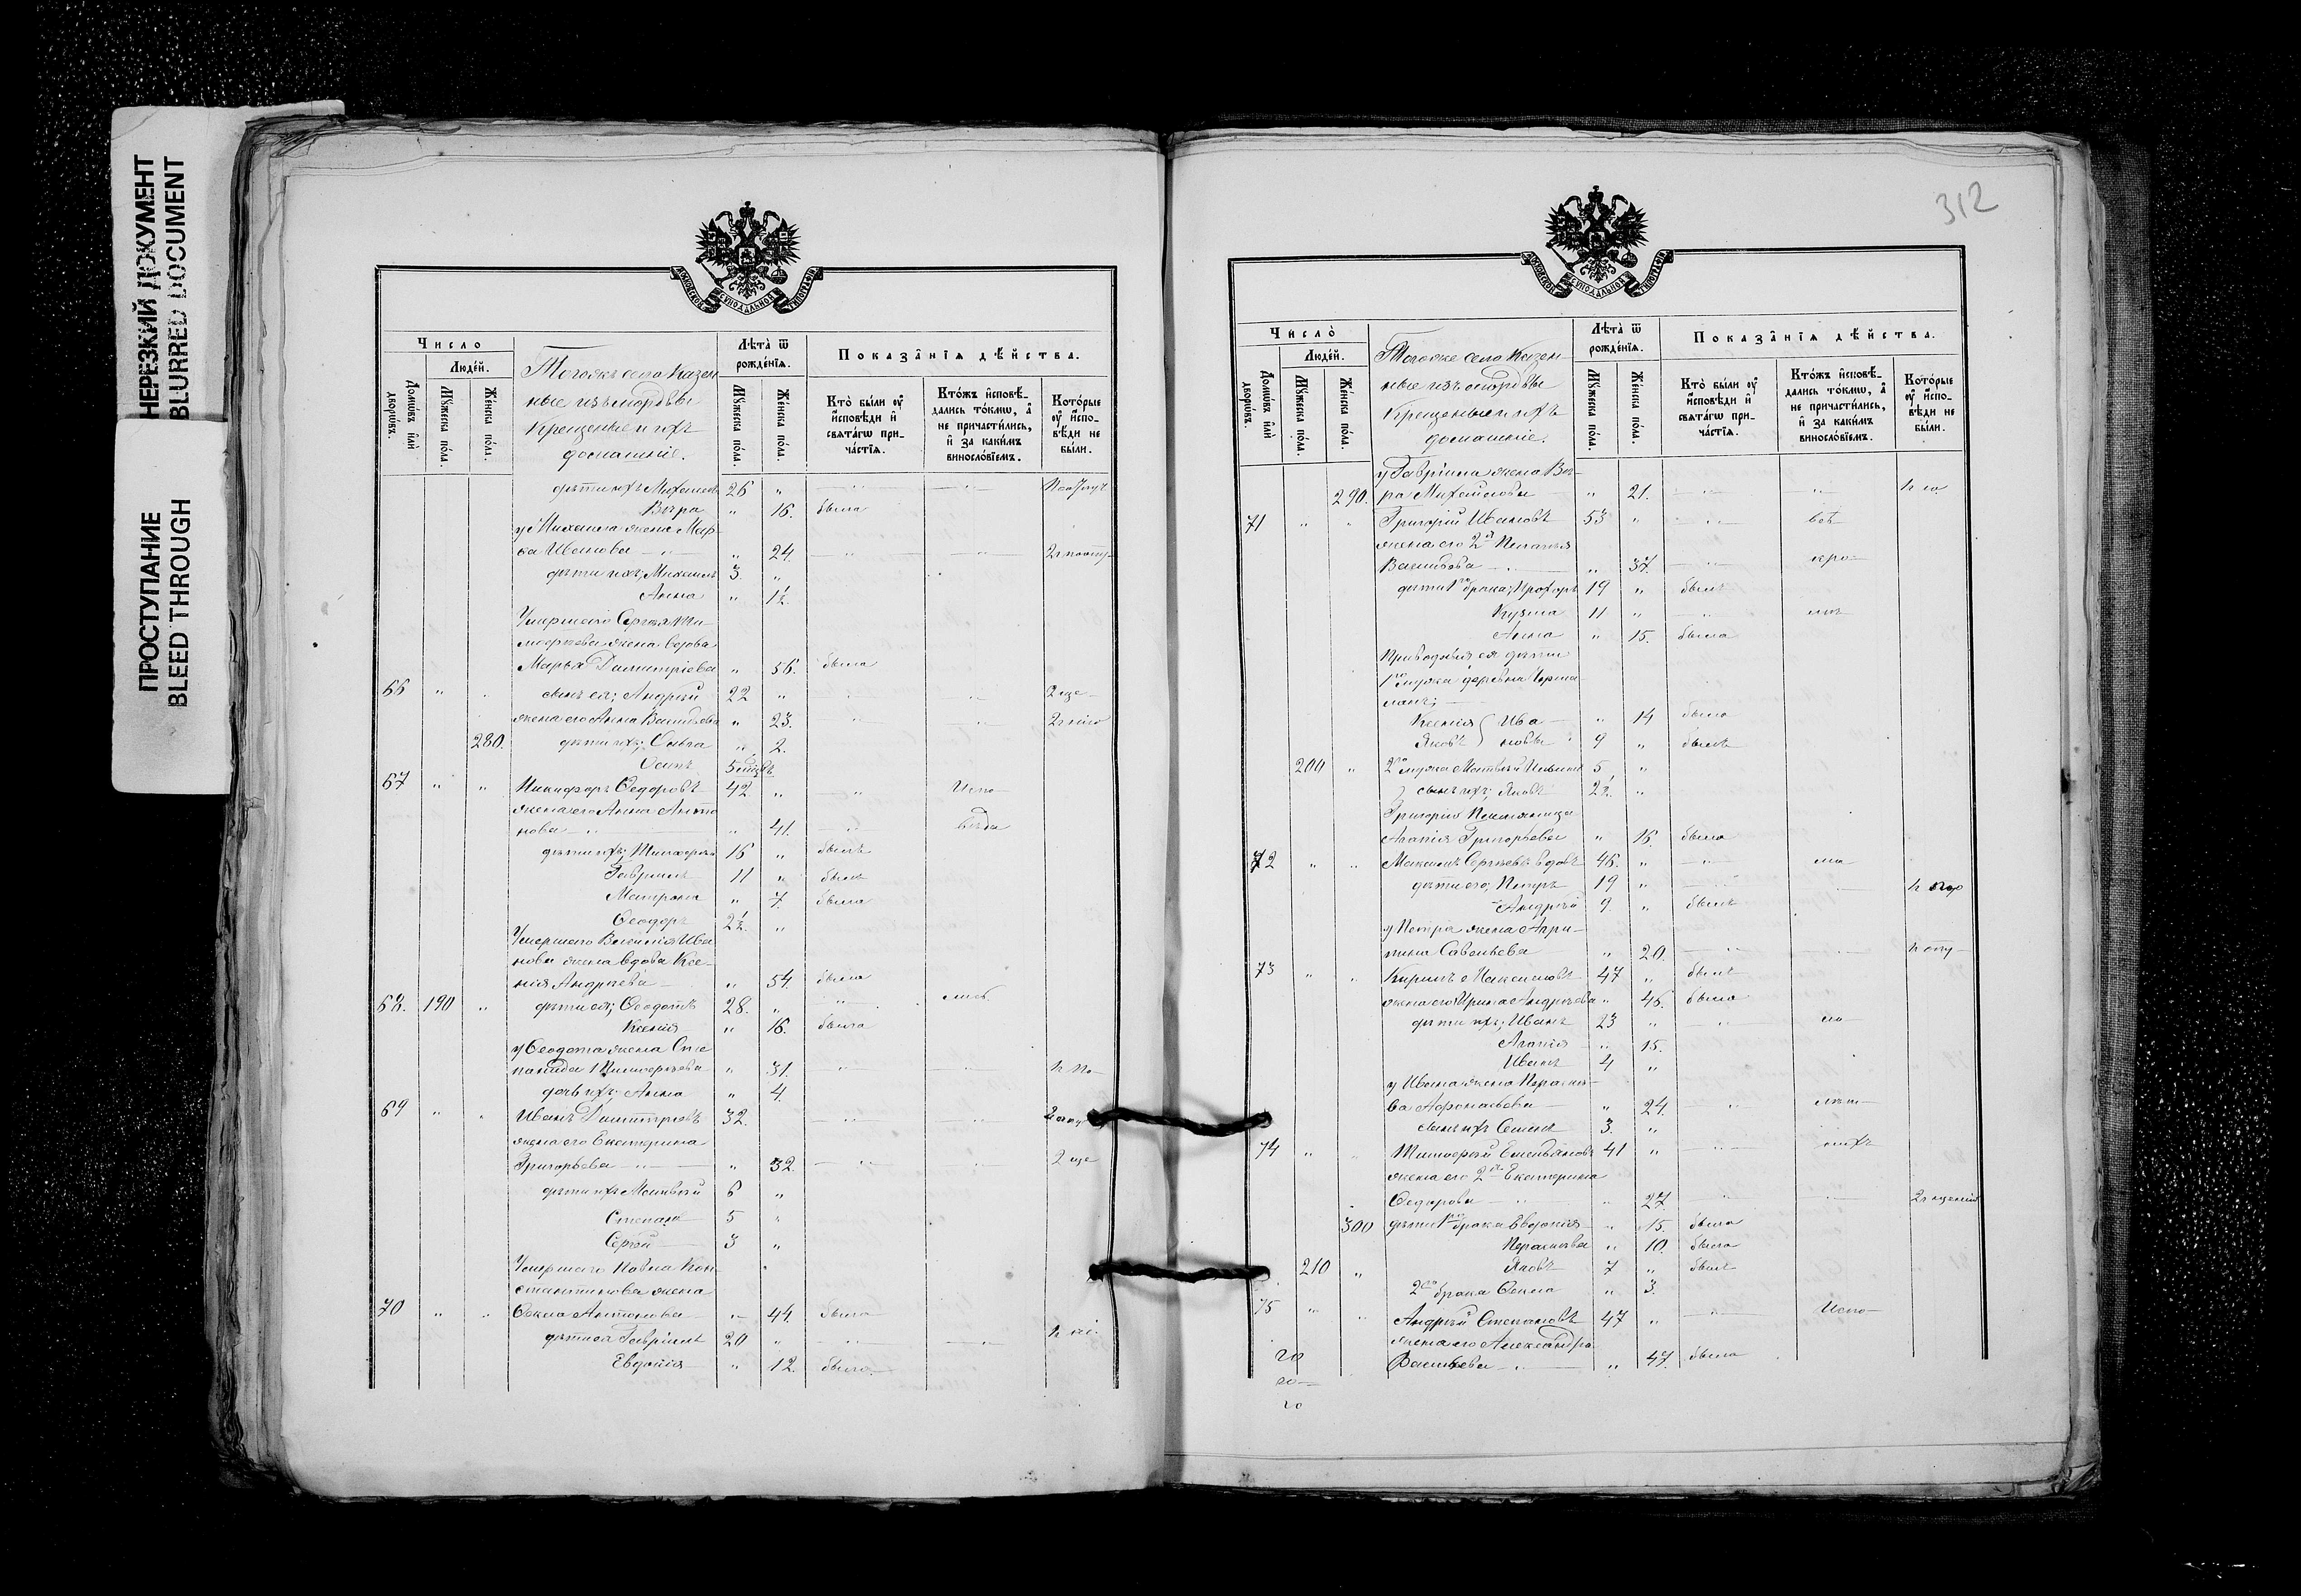 НЕРЕЗКИЙ ДОКУМЕНТ
BLURRED DOCUMENT
ПРОСТУПАНИЕ
BLEED THROUGH
МОСКОВСКОЙ СѴНОДАЛЬНОЙ ТИПОГРАФІИ
Число
Людей.
Домѡвъ или дворѡвъ.
Мꙋжеска пола.
Женска пола.
Тогоже села казен
ные изъ мордвы
крещеные и ихъ
домашніе.
Лѣта ѿ рожденїѧ.
Мꙋжеска пола.
Женска пола.
Показанїѧ дѣйства.
Кто были ꙋ исповѣди и свѧтагѡ причастїѧ.
Ктожъ исповѣдались токмѡ, а не причастились, и за какимъ винословїемъ.
Которые ꙋ исповѣди не были.
дѣти ихъ Михаилъ 26 „
Вѣра „ 16. была
у Михаила жена Мар
ѳа Иванова „ 24.
дѣти ихъ; Михаилъ 3. „
Анна „ 1½.
Умершаго Сергѣя Ти
моѳеева жена вдова
Марья Димитріева „ 56. была
66 „ „ сынъ ея; Андрей 22 „
жена его Анна Васильева „ 23.
280. дѣти ихъ; Ольга „ 2.
Осипъ 5
67 „ „ Никифоръ Ѳедоровъ 42 „ Испо
жена его Анна Анто
нова „ 41. вѣда
дѣти ихъ; Тимоѳей 16 „ былъ
Гавріилъ 11 „ былъ
Матрона „ 7. была
Ѳеодоръ 2½. „
Умершаго Василія Ива
нова жена вдова Ксе
нія Андреева „ 54. была
68. 190 „ дѣти ея; Ѳеодотъ 28. „
Ксенія „ 16. была
у Ѳеодота жена Сте
панида Тимоѳеева „ 31.
дочь ихъ; Анна „ 4.
69 „ „ Иванъ Димитріевъ 32.
жена его Екатерина
Григорьева „ 32. 2 ще
дѣти ихъ Матвей 6 „
Степанъ 5 „
Сергей 3 „
Умершаго Павла Кон
стантинова жена
70 „ „ Ѳекла Антонова „ 44. была
дѣти ея Гавріилъ 20 „
Евдокія „ 12. была
312
МОСКОВСКОЙ СѴНОДАЛЬНОЙ ТИПОГРАФІИ
Число
Людей.
Домѡвъ или дворѡвъ.
Мꙋжеска пола.
Женска пола.
Тогоже села казен
ные изъ мордвы
крещеные и ихъ
домашніе.
Лѣта ѿ рожденїѧ.
Мꙋжеска пола.
Женска пола.
Показанїѧ дѣйства.
Кто были ꙋ исповѣди и свѧтагѡ причастїѧ.
Ктожъ исповѣдались токмѡ, а не причастились, и за какимъ винословїемъ.
Которые ꙋ исповѣди не были.
у Гавріила жена Вѣ
290. ра Михайлова „ 21.
71 „ „ Григорій Ивановъ 53 „
жена его 2я Пелагея
Васильева „ 37.
дѣти 1го брака; Прохоръ 19 „ былъ
Кузма 11 „
Анна „ 15. была
Приводныя ея дѣти
1го мужа деревни
Ксенія } Ива „ 14 была
Яковъ } новы 9 „ былъ
200 „ 2го мужа Матвей 5 „
сынъ ихъ; Яковъ 2½. „
Григорію племянница
Агапія Григорьева „ 16. была
72 „ „ Максимъ Сергеевъ вдовъ 46. „
дѣти его; Петръ 19 „
Андрей 9. „ былъ
у Петра жена Агри
пина Савельева „ 20.
73 „ „ Кирилъ Максимовъ 47 „ былъ
жена его Ирина Андреева „ 46. была
дѣти ихъ; Иванъ 23 „
Агапія „ 15.
Иванъ 4 „
у Ивана жена Параске
ва Афонасьева „ 24.
сынъ ихъ Семенъ 3. „
74 „ „ Тимоѳей Емельяновъ 41 „
жена его 2я Екатерина
Ѳедорова „ 27.
300 дѣти 1го брака Евдокія „ 15. была
Параскева „ 10. была
210 „ Яковъ 7 „ былъ
2го брака Ѳекла „ 3.
75 „ „ Андрей Степановъ 47 „ Испо
жена его Александра
Васильева „ 47. была